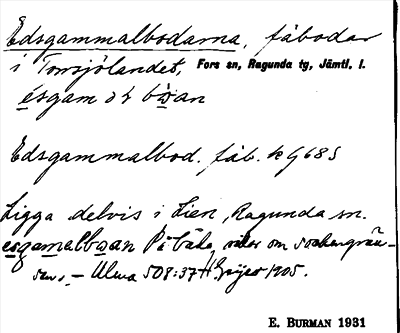 Edsgammalbodarna, fäbodar
i Torrsjölandet, Fors sn, Ragunda tg, Jämtl. l.
ésgam
Edsgammalbod. fäb. k G 68 S
Ligga delvis i Lien, Ragunda sn.
esgamalboan På båda sidor om sockengrän-
sen. – Ulma 508:37 H Geijer 1905.
E. BURMAN 1931